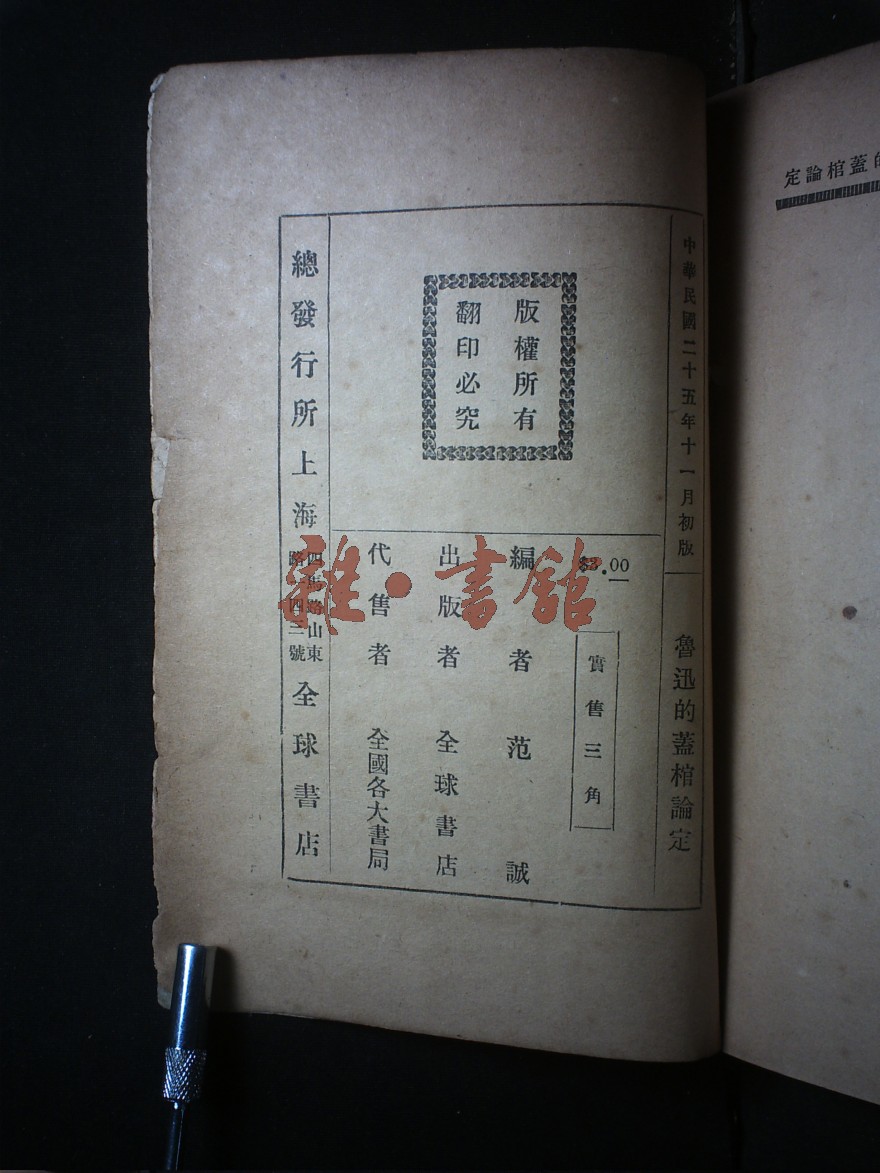 的蓋棺論定
中華民國二十五年十一月初版
魯迅的蓋棺論定
實售三角
版權所有
翻印必究
編者范誠
出版者全球書店
代售者全國各大書局
總發行所上海
四馬路山東
路一四三號
全球書店
雜·書館